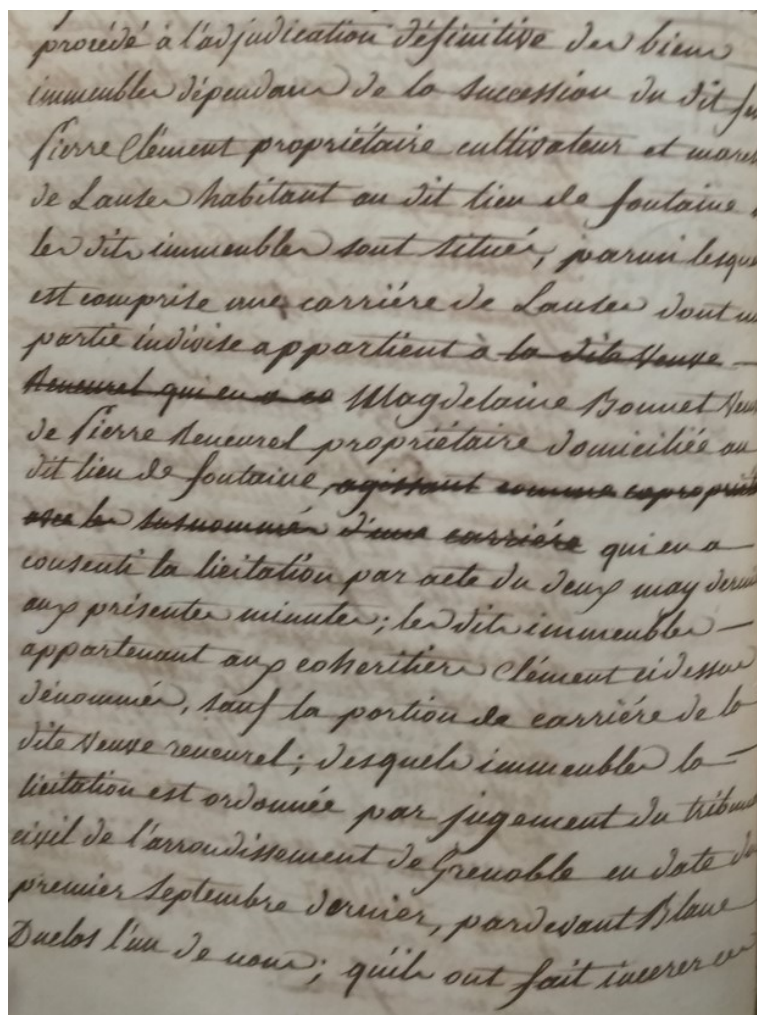 procédé à l'adjudication définitive des biens
immeubles dépendans de la succession du dit
Pierre Clément propriétaire cultivateur et
de Lauses habitant au dit lieu de fontaine
les dits immeubles sont situés, parmi
est comprise une carriére de Lauses dont
partie indivise appartient à la dite Veuve
Reneurel qui en a Magdelaine Bonnet
de Pierre Reneurel propriétaire domiciliée au
dit lieu de fontaine, agissant comme
avec les susnommés d'une carriére qui en a
consenti la licitation par acte du deux may
aux présentes minutes; les dits immeubles
appartenant aux coheritiers Clément ci dessus
dénommés, sauf la portion de carriére de la
dite Veuve reneurel; desquels immeubles la
licitation est ordonnée par jugement du
civil de l'arrondissement de Grenoble en date du
premier Septembre dernier, pardevant Blanc
Duclos l'un de nous; qu'ils ont fait incerer